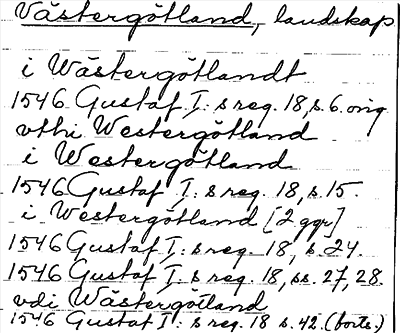 Västergötland, landskap
i Wästergötlandt
1546 Gustaf I:s reg. 18, s. 6. orig
vthi Westergötland
i Westergötland
1546 Gustaf I:s reg. 18, s. 15.
i Westergötland [2 ggr]
1546 Gustaf I:s reg. 18, s. 24.
1546 Gustaf I:s reg. 18, ss. 27, 28.
vdi Wästergötland
1546 Gustaf I:s reg. 18 s. 42. (forts.)